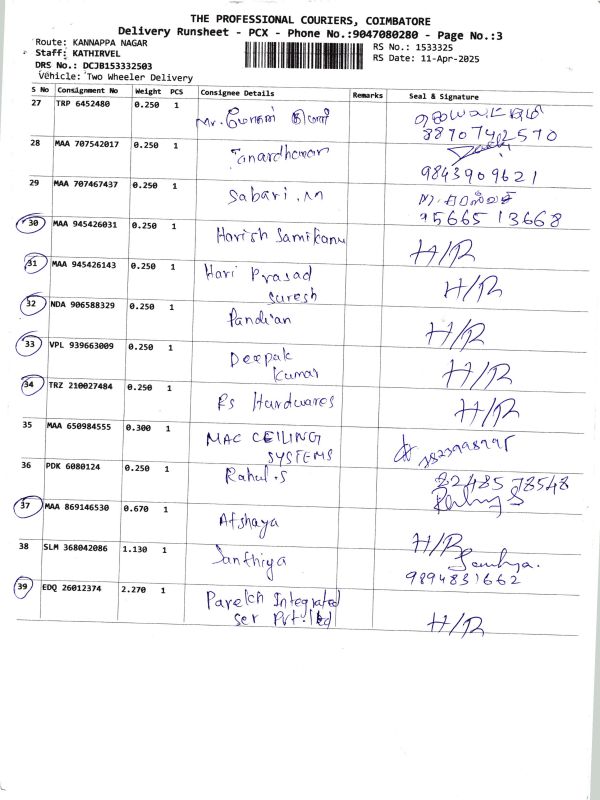 THE PROFESSIONAL COURIERS, COIMBATORE
Delivery Runsheet - PCX - Phone No.:9047080280 - Page No.:3
Route: KANNAPPA NAGAR
RS No.: 1533325
Staff: KATHIRVEL
RS Date: 11-Apr-2025
DRS No.: DCJB153332503
Vehicle: Two Wheeler Delivery
S No Consignment No Weight PCS Consignee Details Remarks Seal & Signature
27 TRP 6452480 0.250 1 Mr.
8870742570
28 MAA 707542017 0.250 1 Janardhanan
9843909621
29 MAA 707467437 0.250 1 Sabari.M
9566513668
30 MAA 945426031 0.250 1 Harish Samikanu H/R
31 MAA 945426143 0.250 1 Hari Prasad
Suresh H/R
32 NDA 906588329 0.250 1 Pandian H/R
33 VPL 939663009 0.250 1 Deepak
Kumar H/R
34 TRZ 210027484 0.250 1 Rs Hardwares H/R
35 MAA 650984555 0.300 1 MAC CEILING
SYSTEMS
36 PDK 6080124 0.250 1 Rahul.S
82485 78548
37 MAA 869146530 0.670 1 Afshaya H/R
38 SLM 368042086 1.130 1 Santhiya
9894831662
39 EDQ 26012374 2.270 1 Parekh Integrated
Ser Pvt.ltd H/R